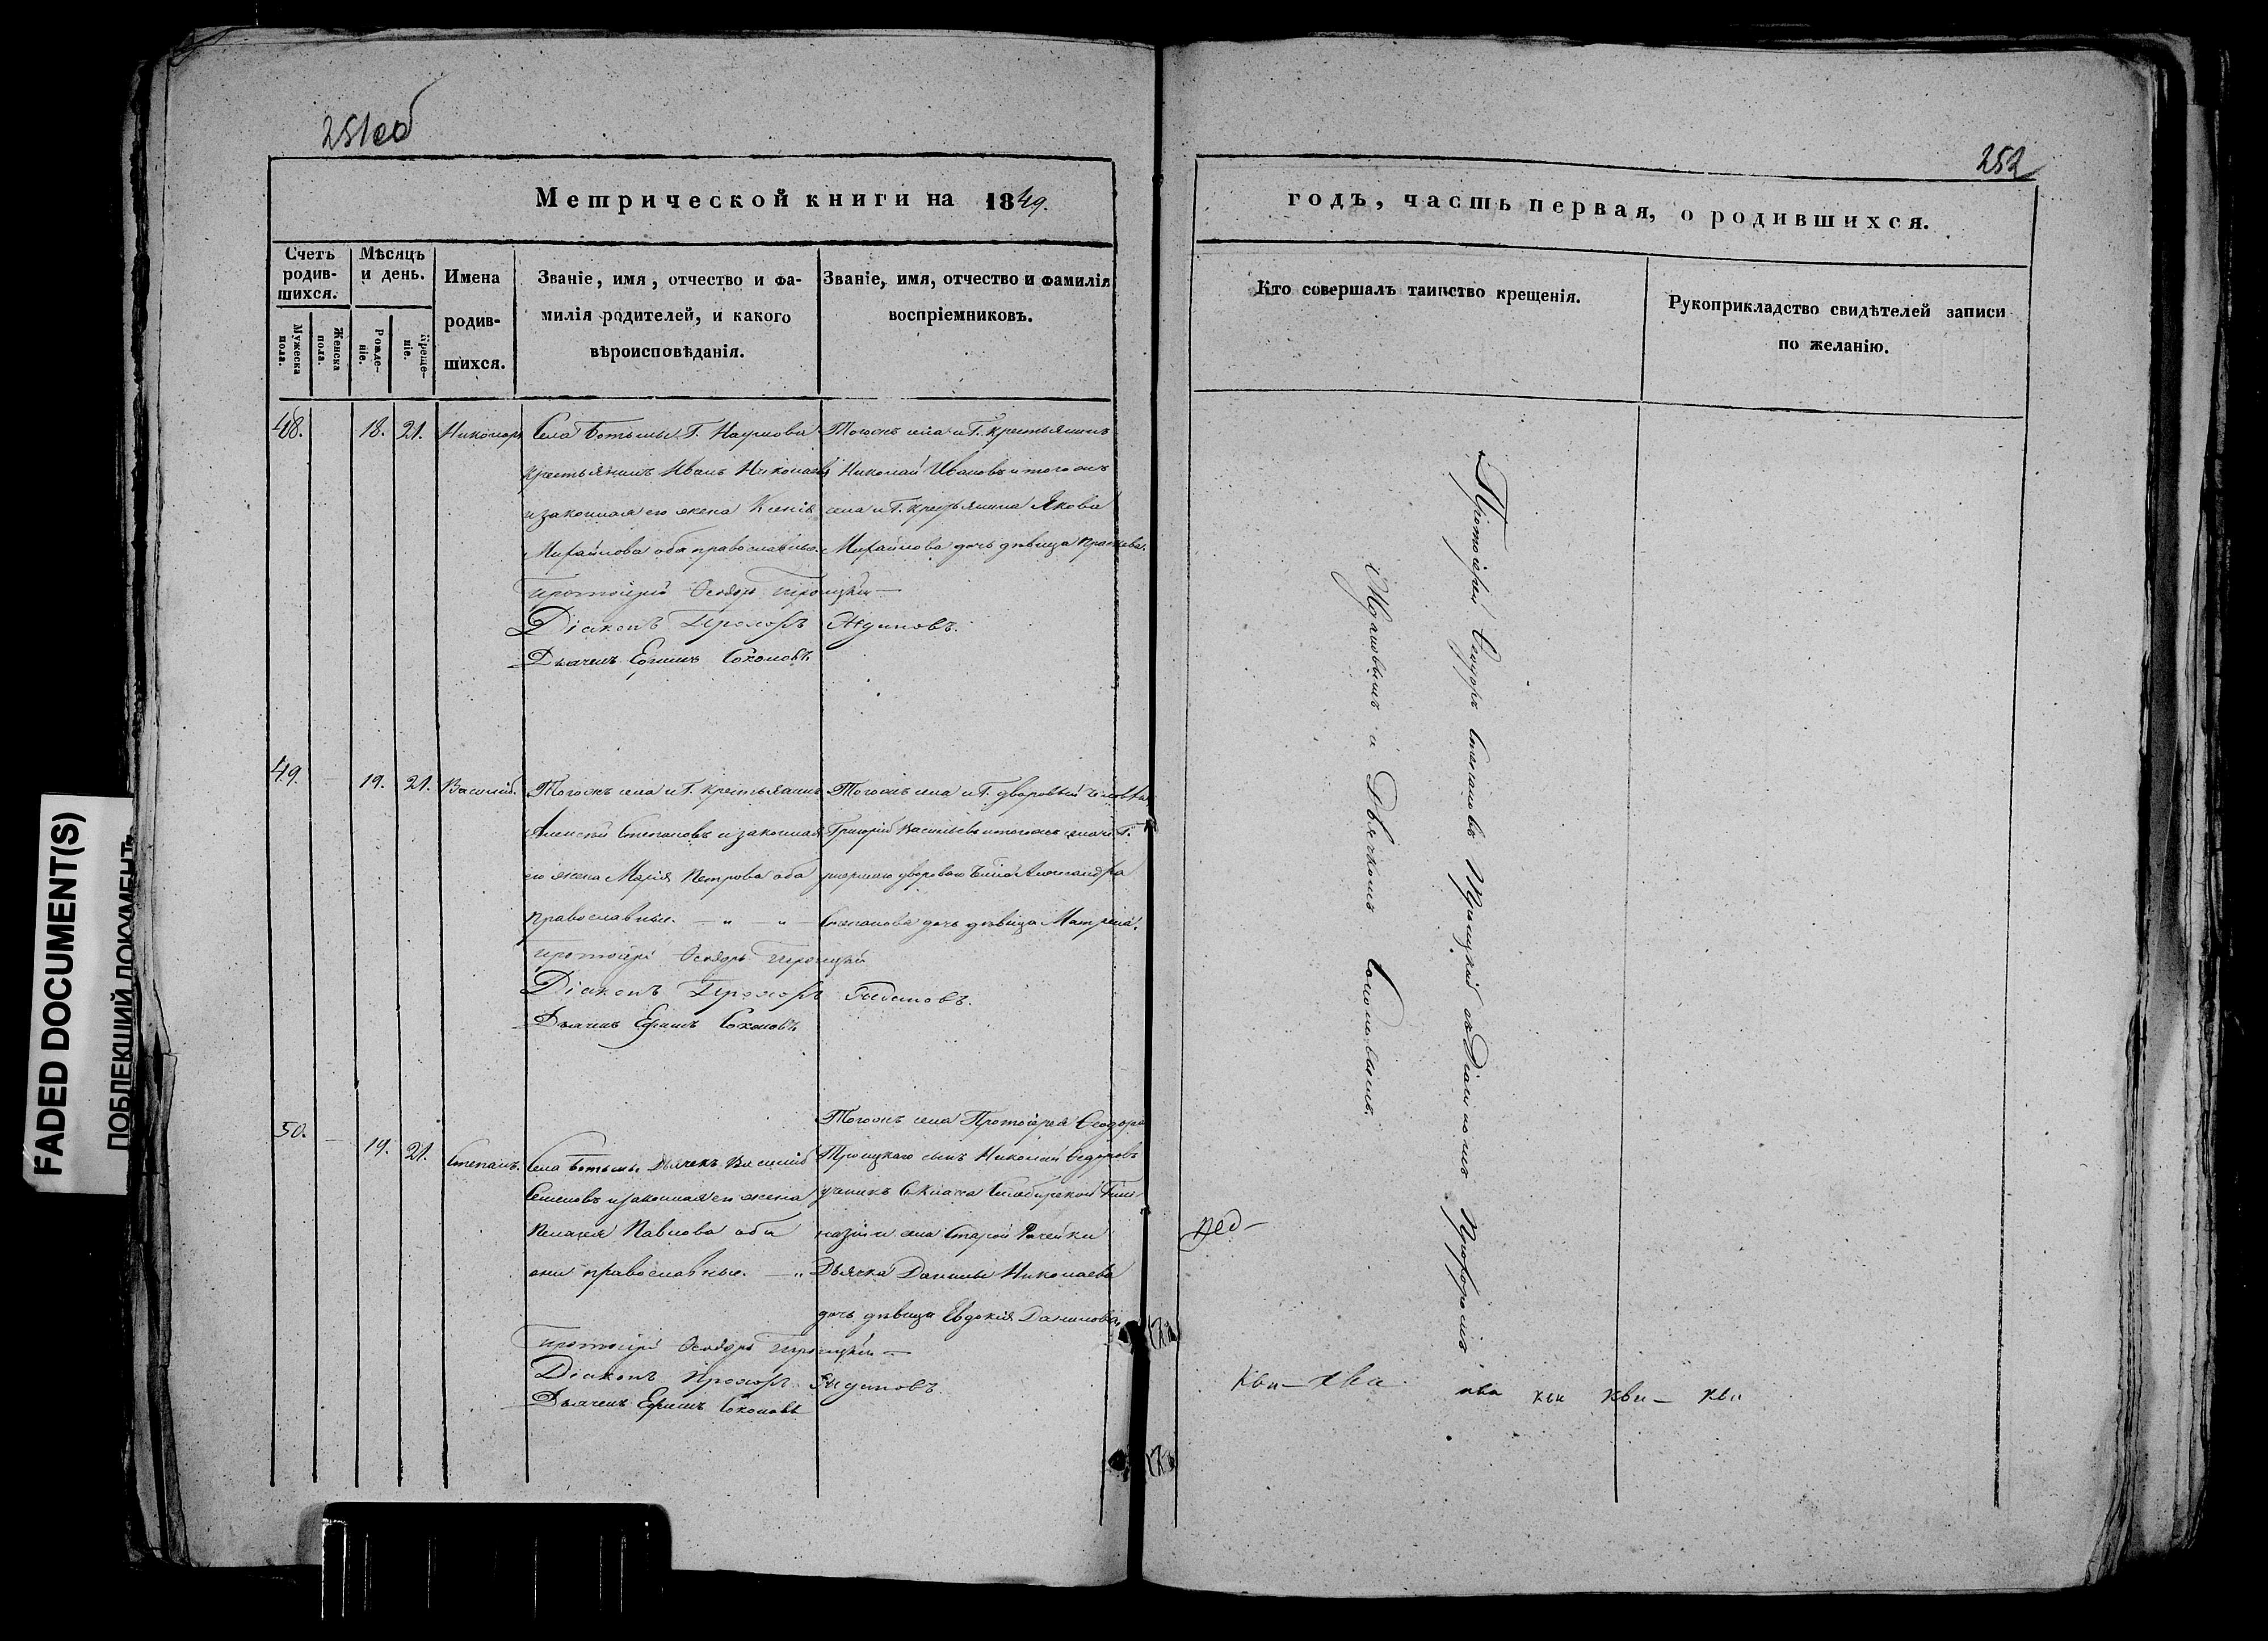 251об
252
Метрической книги на 1849.
годъ, часть первая, о родившихся.
Счетъ родив-шихся.
Мѣсяцъ и день.
Имена родив-шихся.
Званіе, имя, отчество и фа-
милія родителей, и какого
вѣроисповѣданія.
Званіе, имя, отчество и фамилія
воспріемниковъ.
Кто совершалъ таинство крещенія.
Рукоприкладство свидѣтелей записи
по желанію.
Мужеска пола.
Женска пола.
Рожде-ніе.
Креще-ніе.
48. 18. 21. Никоноръ
Села Ботьмы Г. Наумова
крестьянинъ Иванъ Николаевъ
и законная его жена Ксенія
Михайлова оба православные.
Тогожъ села и Г. крестьянинъ
Николай Ивановъ и тогожъ
села и Г. крестьянина Якова
Михайлова дочь дѣвица
Протоіерей Ѳеодоръ Троицкій
Діаконъ Прохоръ
Дьячекъ Ефимъ Соколовъ
49. 19. 21. Василій.
Тогожъ села и Г. крестьянинъ
Алексѣй Степановъ и законная
его жена Марія Петрова оба
православные.
Тогожъ села и Г. дворовый человѣкъ
Григорій Васильевъ и тогожъ села и Г.
умершаго двороваго Александра
Степанова дочь дѣвица Матрена.
Протоіерей Ѳеодоръ Троицкій
Діаконъ Прохоръ
Дьячекъ Ефимъ Соколовъ
50. 19. 21. Степанъ.
Села Ботьмы Дьячекъ Василій
Семеновъ и законная его жена
Пелагея Павлова оба
они православные.
Тогожъ села Протоіерея Ѳеодора
Троицкаго сынъ Николай Ѳедоровъ
ученикъ класса Симбирской Гим-
назіи и села Старой Рачейки
Дьячка Даніила Николаева
дочь дѣвица Евдокія Данилова.
Протоіерей Ѳеодоръ Троицкій
Діаконъ Прохоръ
Дьячекъ Ефимъ Соколовъ
Протоіерей Ѳеодоръ Троицкій съ Діакономъ Прохоромъ
и Дьячкомъ Соколовымъ.
FADED DOCUMENT(S)
ПОБЛЕКШИЙ ДОКУМЕНТ